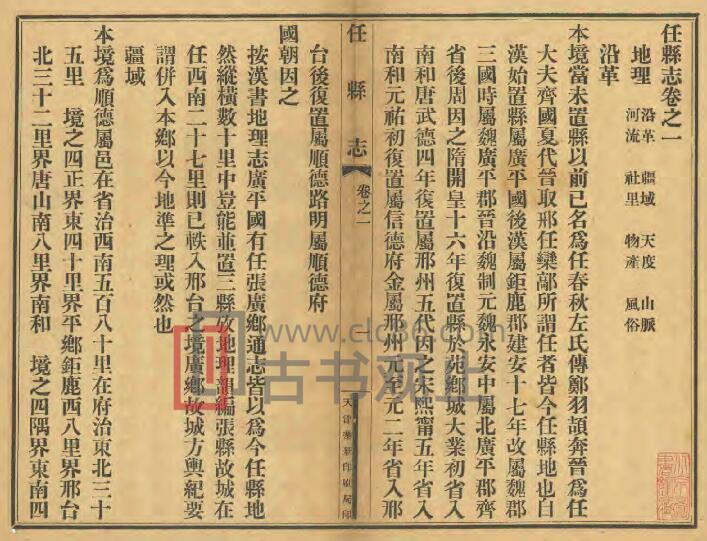 任縣志卷之一
地理 沿革 疆域 天度 山脈
河流 社里 物產 風俗
沿革
本境當未置縣以前已名爲任春秋左氏傳鄭羽頡奔晉爲任
大夫齊國夏伐晉取邢任欒鄗所謂任者皆今任縣地也自
漢始置縣屬廣平國後漢屬鉅鹿郡建安十七年改屬魏郡
三國時屬魏廣平郡晉沿魏制元魏永安中屬北廣平郡齊
省後周因之隋開皇十六年復置縣於苑鄉城大業初省入
南和唐武德四年復置屬邢州五代因之宋熙甯五年省入
南和元祐初復置屬信德府金屬邢州元至元二年省入邢
任縣志
卷之一
天津華新印刷局印
台後復置屬順德路明屬順德府
國朝因之
按漢書地理志廣平國有任張廣鄉通志皆以爲今任縣地
然縱橫數十里中豈能並置三縣攷地理韻編張縣故城在
任西南二十七里則已軼入邢台之境廣鄉故城方輿紀要
謂併入本鄉以今地準之理或然也
疆域
本境爲順德屬邑在省治西南五百八十里在府治東北三十
五里 境之四正界東四十里界平鄉鉅鹿西八里界邢台
北三十二里界唐山南八里界南和 境之四隅界東南四
www.clc86.com
古书观止